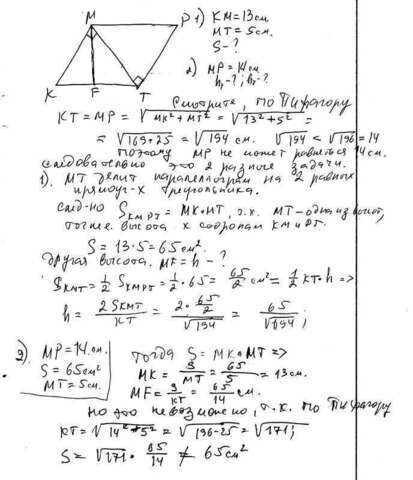 M P
K F T
1) KM = 13 см
MT = 5 см.
S - ?
2) MP = 14 см
h₁ - ?; h₂ - ?
Смотрите, по Пифагору
KT = MP = √MK² + MT² = √13² + 5² =
= √169+25 = √194 см. √194 < √196 = 14
Поэтому MP не может равняться 14 см.
следовательно это 2 разные задачи.
1). MT делит параллелограм на 2 равных
прямоуг-х треугольника.
след-но S_KMPT = MK·MT, т.к. MT - одна из высот,
точнее высота к сторонам KM и PT.
S = 13·5 = 65 см².
Другая высота. MF = h - ?
S_KMT = 1/2 S_KMPT = 1/2 · 65 = 65/2 см² = 1/2 KT·h =>
h = 2S_KMT/KT = 2·65/2/√194 = 65/√194;
2). MP = 14 см.
S = 65 см²
MT = 5 см.
Тогда S = MK·MT =>
MK = S/MT = 65/5 = 13 см.
MF = S/KT = 65/14 см.
но это невозможно, т.к. по Пифагору
KT = √14² + 5² = √196-25 = √171;
S = √171 · 65/14 ≠ 65 см²